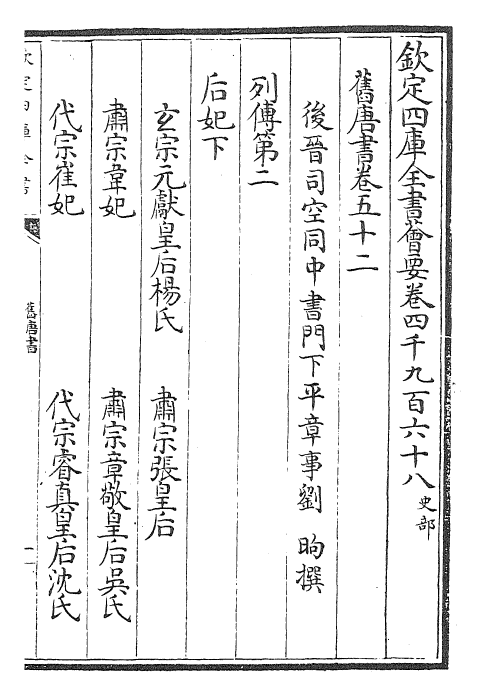 欽定四庫全書薈要卷四千九百六十八 史部
舊唐書卷五十二
後晉司空同中書門下平章事劉 昫撰
列傳第二
后妃下
玄宗元獻皇后楊氏 肅宗張皇后
肅宗韋妃 肅宗章敬皇后吳氏
代宗崔妃 代宗睿真皇后沈氏
舊唐書